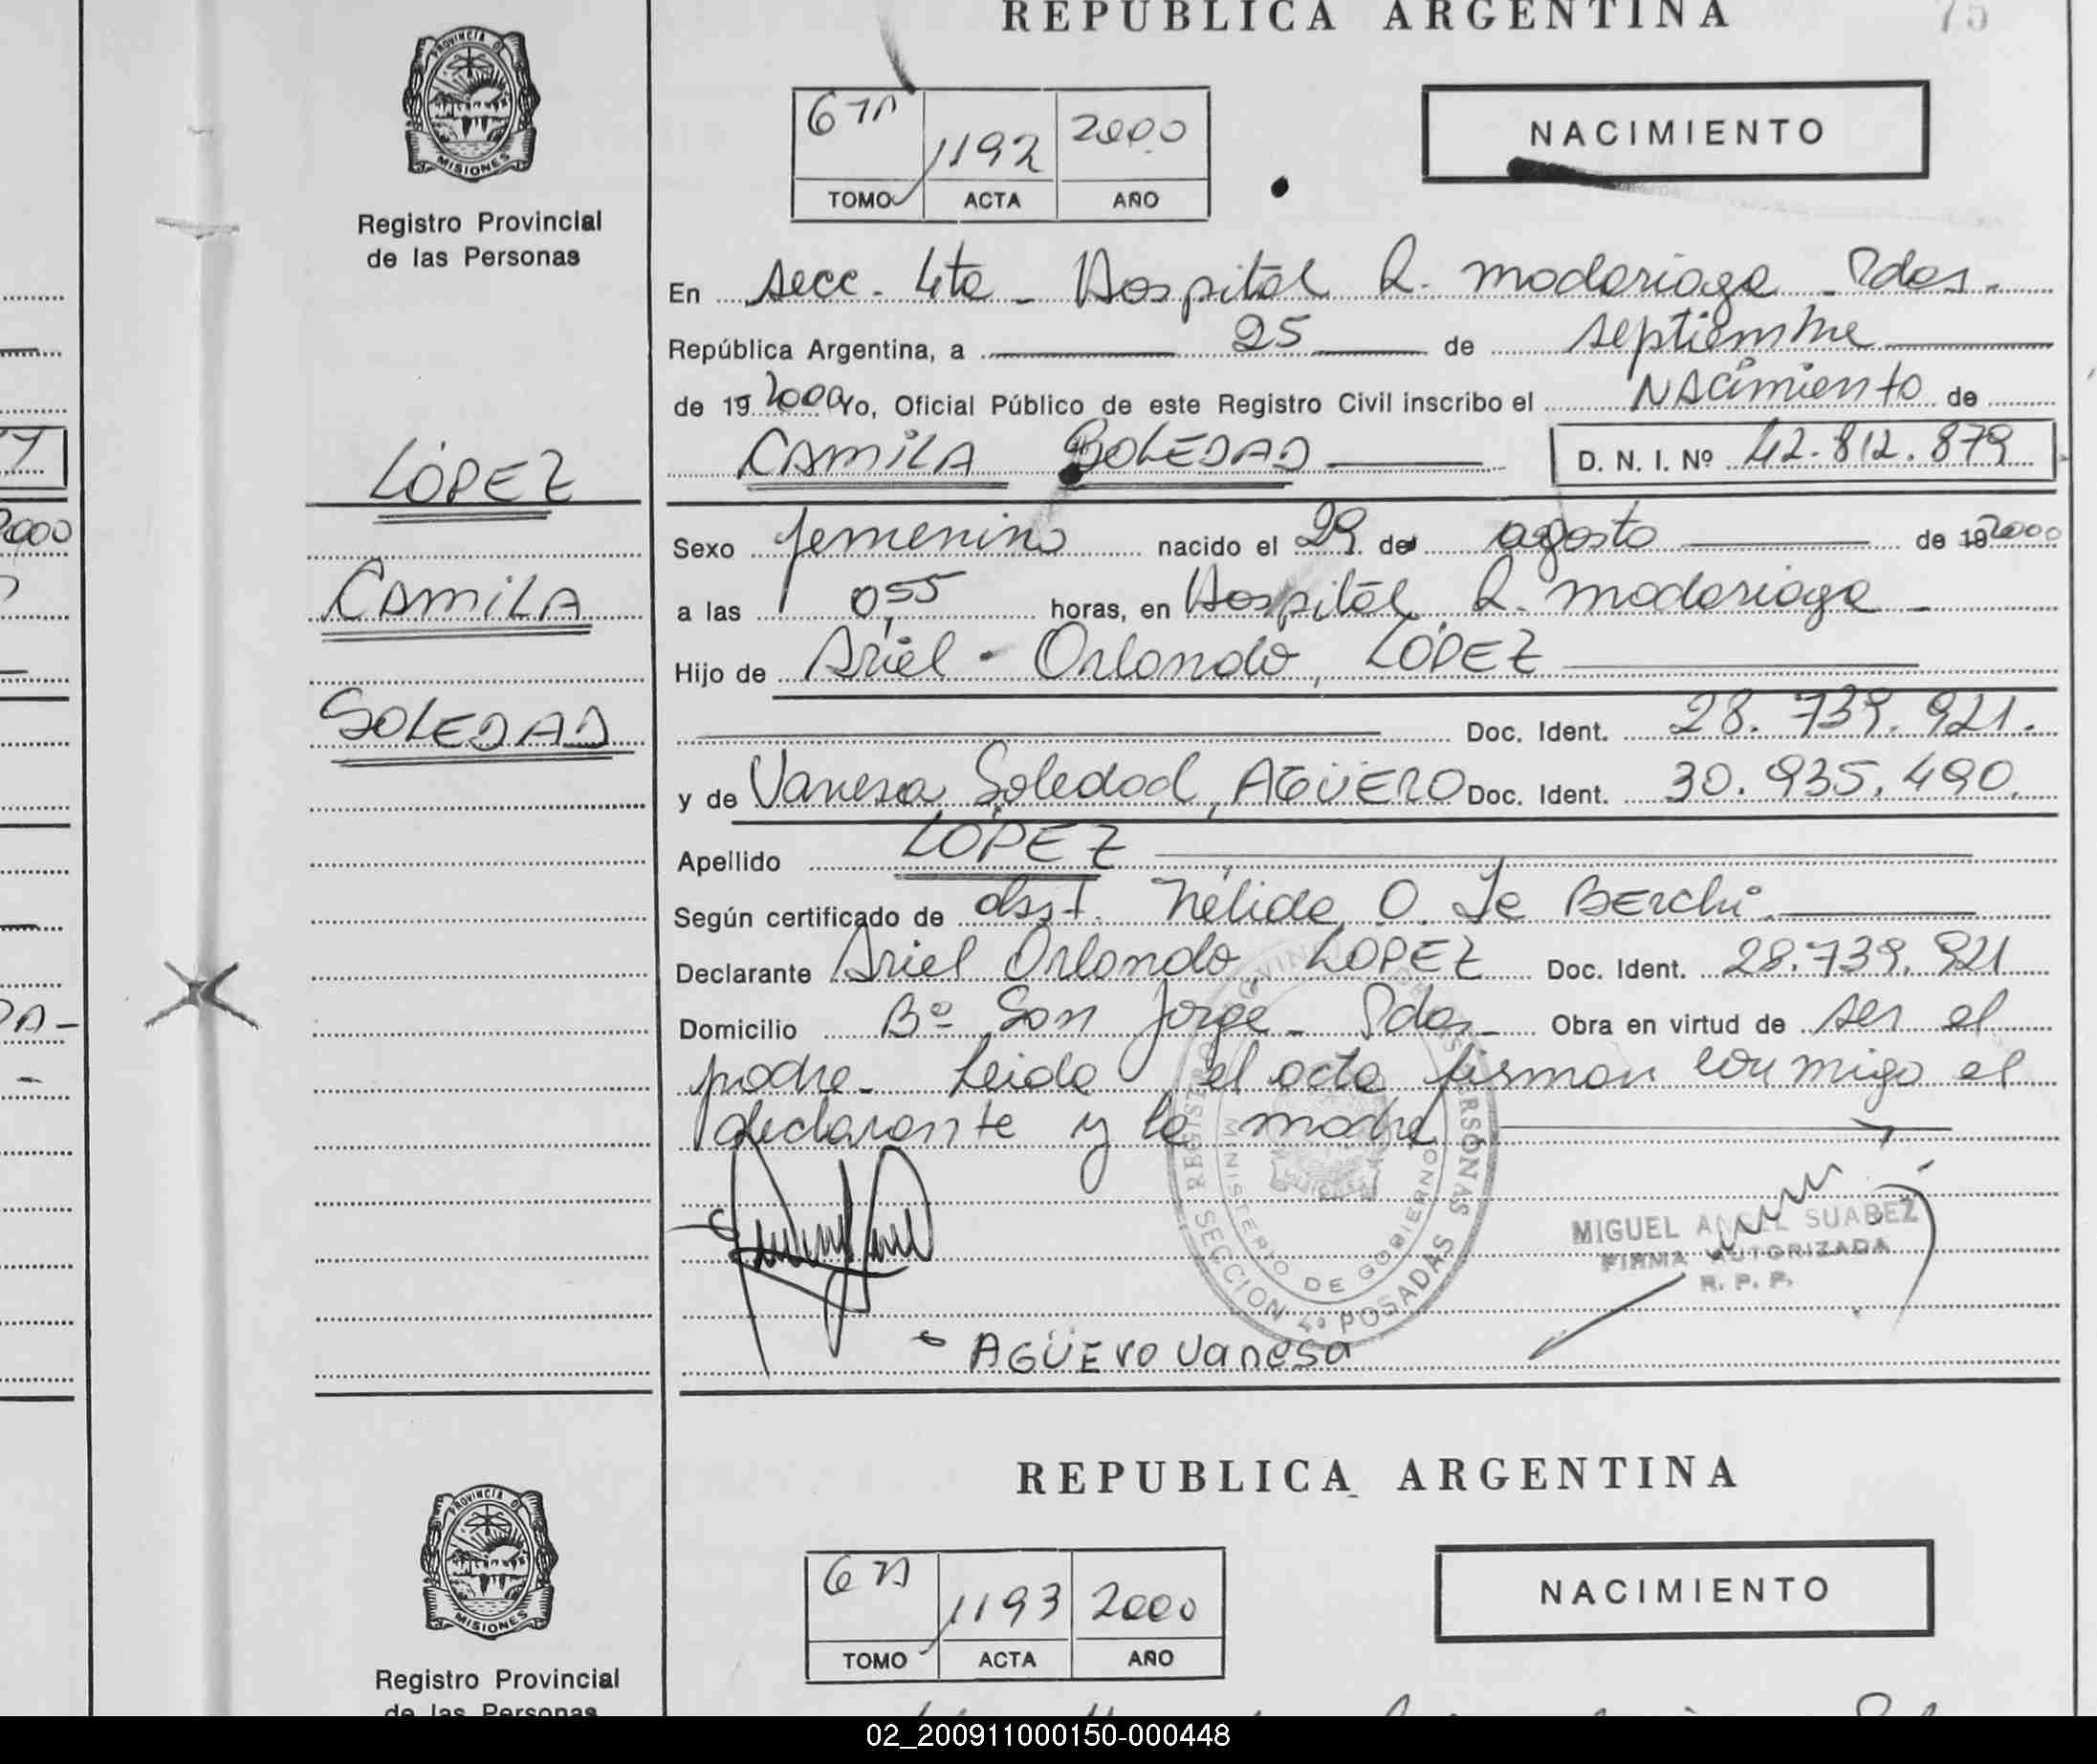 REPUBLICA ARGENTINA
75
PROVINCIA DE
MISIONES
Registro Provincial
de las Personas
1192 2000
TOMO ACTA AÑO
NACIMIENTO
En Secc. 4ta - Hospital R. Madariaga - Pdas.
República Argentina, a 25 de septiembre
de 19 2000 Yo, Oficial Público de este Registro Civil inscribo el NAcimiento de
CAMiLA SOLEDAD D. N. I. Nº 42.812.879
LÓPEZ
CAMiLA
SOLEDAD
Sexo femenino nacido el 29 de agosto de 19 2000
a las 0,55 horas, en Hospital R. Madariaga -
Hijo de Ariel - Orlando, LÓPEZ
Doc. Ident. 28.739.921.
y de Vanesa Soledad, AGÜERO Doc. Ident. 30.935.490.
Apellido LÓPEZ
Según certificado de obst. Nélida O. de
Declarante Ariel Orlando LOPEZ Doc. Ident. 28.739.921
Domicilio Bº San Jorge - Pdas - Obra en virtud de ser el
padre - Leida el acta firman conmigo el
declarante y la madre
REGISTRO PROVINCIAL DE LAS PERSONAS
MINISTERIO DE GOBIERNO
SECCION 4º POSADAS
MIGUEL ANGEL SUAREZ
FIRMA AUTORIZADA
R. P. P.
AGÜEro Vanesa
REPUBLICA ARGENTINA
PROVINCIA DE
MISIONES
Registro Provincial
de las Personas
1193 2000
TOMO ACTA AÑO
NACIMIENTO
02_200911000150-000448